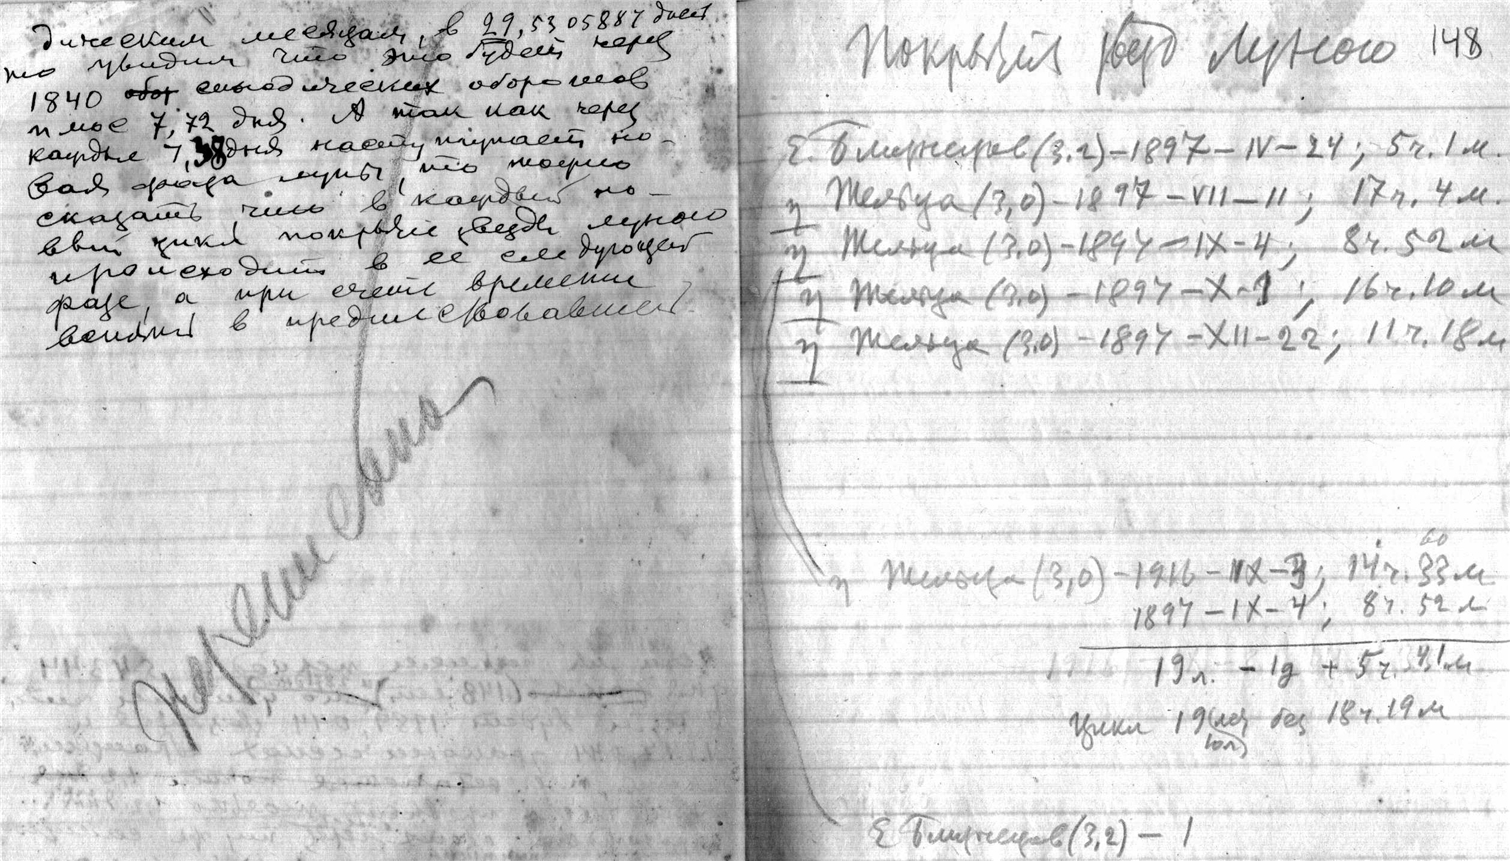 дическим месяцам, в 29,5305887 дней
то увидим что это будет через
1840 обор синодических оборотов
плюс 7,72 дня. А так как через
каждые 7,38 дня наступает но-
вая фаза луны, то можно
сказать, что в каждый но-
вый цикл покрытие звезды луною
происходит в ее следующей
фазе, а при счете времени
вспять в предшествовавшей.
Переписано
Покрытия звезд Луною 148
ε Близнецов (3.2) - 1897 - IV - 24; 5 ч. 1 м.
η Тельца (3,0) - 1897 - VII - II; 17 ч. 4 м.
η Тельца (3.0) - 1897 - IX - 4; 8 ч. 52 м
η Тельца (3.0) - 1897 - X - 1; 16 ч. 10 м
η Тельца (3.0) - 1897 - XII - 22; 11 ч. 18 м
60
η Тельца (3,0) - 1916 - IX - 3; 14 ч. 33 м
1897 - IX - 4; 8 ч. 52 м
19 л. - 1д + 5 ч. 41 м
Цикл 19 лет без 18 ч. 19 м
ε Близнецов (3,2) - 1